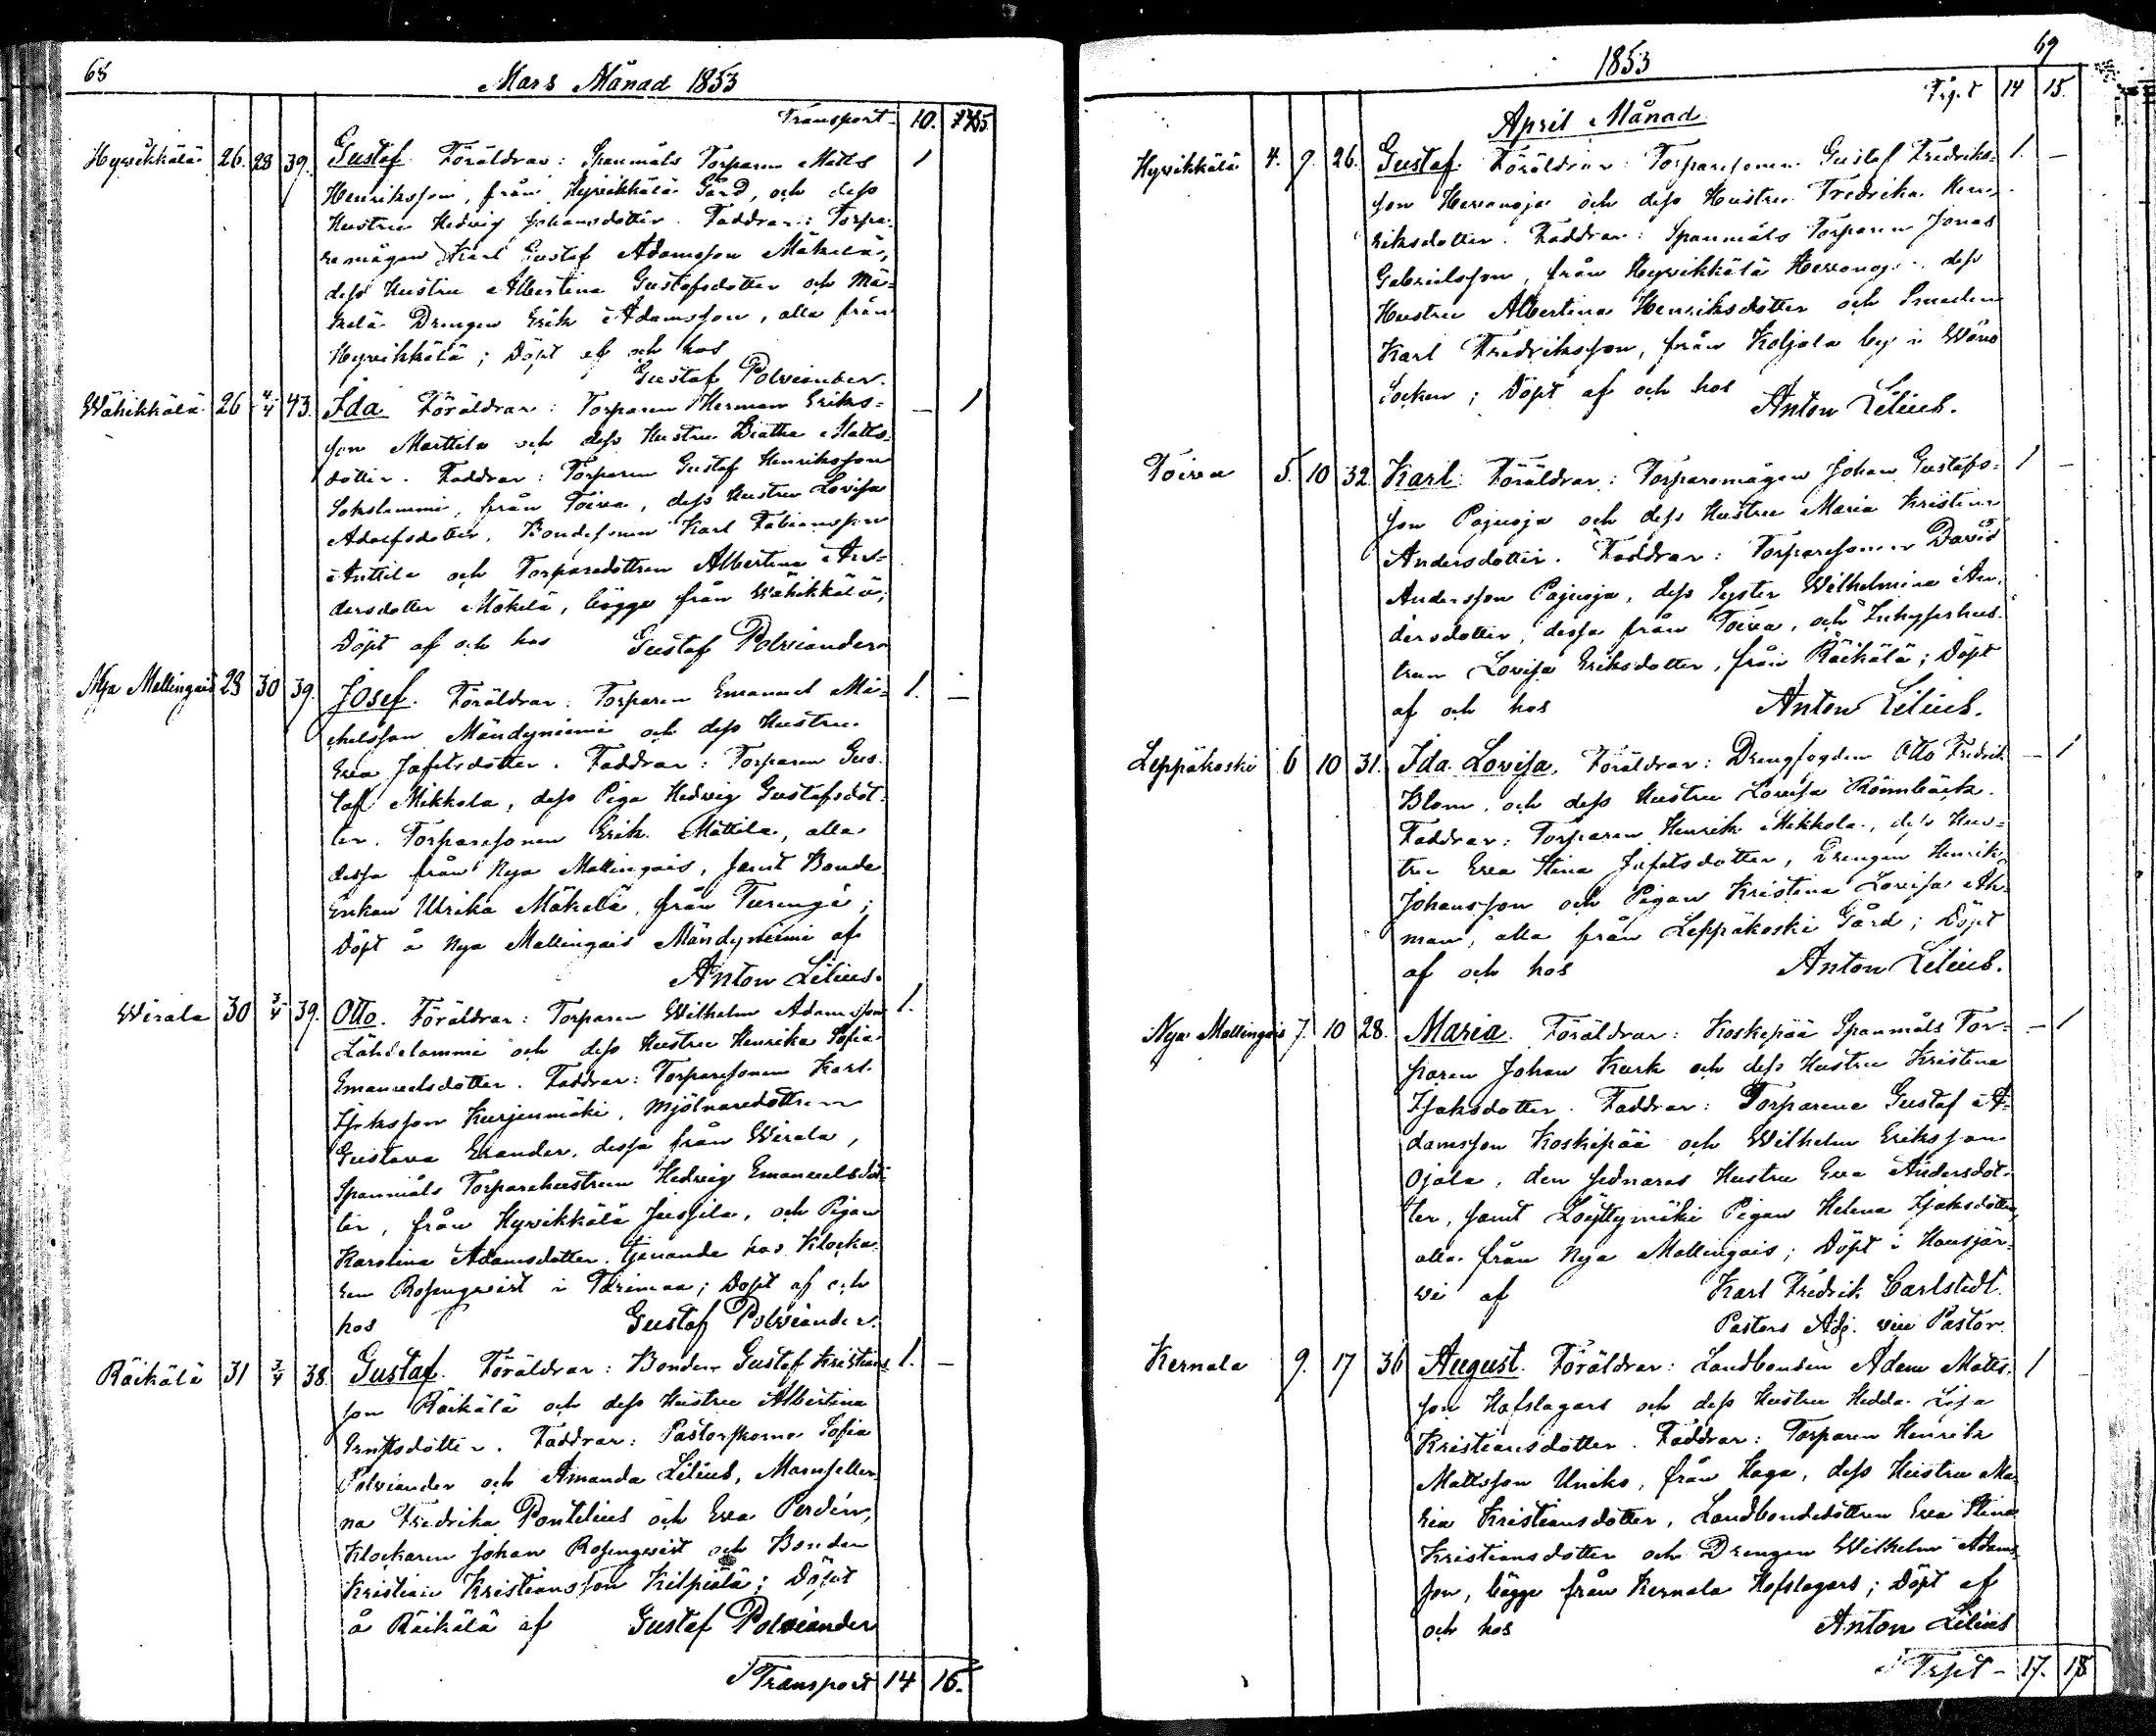 68
Mars Månad 1853
Transport 10.
Hyvikkälä 26. 28 39. Gustaf. Föräldrar: Spanmåls Torparen Matts 1
Henriksson, från Hyvikkälä Gård, och dess
Hustru Hedvig Johansdotter. Faddrar: Torpa-
remågen Karl Gustaf Adamsson Mäkelä,
dess Hustru Albertina Gustafsdotter och Mä-
kelä Drengen Erik Adamsson, alla från
Hyvikkälä; Döpt af och hos
Gustaf Polviander.
Wähikkälä 26 4/4 43. Ida. Föräldrar: Torparen Herman Eriks- — 1
son Marttila och dess Hustru Beatha Matts-
dotter. Faddrar: Torparen Gustaf Henriksson
Sokslammi, från Toiva, dess Hustru Lovisa
Adolfsdotter, Bondesonen Karl Fabiansson
Anttila och Torparedottren Albertina An-
dersdotter Mäkelä, bägge från Wähikkälä;
Döpt af och hos Gustaf Polviander
Nya Mallingais 28 30 39. Josef. Föräldrar: Torparen Emanuel Mi- 1. —
chelsson Mändyniemi och dess Hustru
Eva Jafetsdotter. Faddrar: Torparen Gus-
taf Mikkola, dess Piga Hedvig Gustafsdot-
ter, Torparesonen Erik Mattila, alla
dessa från Nya Mallingais, samt Bonde
Enkan Ulrika Mäkelä, från Turengi;
Döpt å Nya Mallingais Mändyniemi af
Anton Lilius.
Wirala 30 3/4 39. Otto. Föräldrar: Torparen Wilhelm Adamsson 1.
Lähdelammi och dess Hustru Henrika Sofia
Emanuelsdotter. Faddrar: Torparesonen Karl
Isaksson Kurjenmäki, Mjölnaredottren
Gustava Elander, dessa från Wirala,
Spanmåls Torparehustrun Hedvig Emanuelsdot-
ter, från Hyvikkälä Jussila, och Pigan
Karolina Adamsdotter, tjenande hos Klocka-
ren Rosengwist i Tarimaa; Döpt af och
hos Gustaf Polviander.
Räikälä 31 3/4 38. Gustaf. Föräldrar: Bonden Gustaf Kristians- 1. —
son Räikälä och dess Hustru Albertina
Ernstsdotter. Faddrar: Pastorskorna Sofia
Polviander och Amanda Lilius, Mamseller-
na Fredrika Pontelius och Eva Perdén,
Klockaren Johan Rosengwist och Bonden
Kristian Kristiansson Kilpiälä; Döpt
å Räikälä af Gustaf Polviander
Transport 14 16.
69
1853
Trpt 14 15.
April Månad
Hyvikkälä 4. 9. 26. Gustaf. Föräldrar: Torparesonen Gustaf Fredriks- 1. —
son Hevonoja och dess Hustru Fredrika Hen-
riksdotter. Faddrar: Spanmåls Torparen Jonas
Gabrielsson, från Hyvikkälä Hevonoja, dess
Hustru Albertina Henriksdotter och Smeden
Karl Fredriksson, från Koljala by i Wånå
Socken; Döpt af och hos
Anton Lilius.
Toiva 5. 10 32. Karl. Föräldrar: Torparemågen Johan Gustafs- 1 —
son Pajuoja och dess Hustru Maria Kristina
Andersdotter. Faddrar: Torparesonen David
Andersson Pajuoja, dess Syster Wilhelmina An-
dersdotter, dessa från Toiva, och Inhysehus-
trun Lovisa Eriksdotter, från Räikälä; Döpt
af och hos Anton Lilius.
Leppäkoski 6 10 31. Ida Lovisa. Föräldrar: Drengfogden Otto Fredrik — 1
Blom, och dess Hustru Lovisa Rönnbäck.
Faddrar: Torparen Henrik Mikkola, dess Hus-
tru Eva Stina Jafetsdotter, Drengen Henrik
Johansson och Pigan Kristina Lovisa Åh-
man, alla från Leppäkoski Gård; Döpt
af och hos Anton Lilius.
Nya Mallingais 7. 10 28. Maria. Föräldrar: Koskipää Spanmåls Tor- — 1
paren Johan Kurk och dess Hustru Kristina
Isaksdotter. Faddrar: Torparene Gustaf A-
damsson Koskipää och Wilhelm Eriksson
Ojala, den sednares Hustru Eva Andersdot-
ter, samt Löyttymäki Pigan Helena Isaksdotter,
alla från Nya Mallingais; Döpt i Hausjär-
vi af Karl Fredrik Carlstedt.
Pastors Adj. vice Pastor.
Kernala 9. 17 36 August. Föräldrar: Landbonden Adam Matts- 1 —
son Hofslagars och dess Hustru Hedda Lisa
Kristiansdotter. Faddrar: Torparen Henrik
Mattsson Uniko, från Haga, dess Hustru Ma-
ria Kristiansdotter, Landbondedottren Eva Stina
Kristiansdotter och Drengen Wilhelm Adams-
son, bägge från Kernala Hofslagars; Döpt af
och hos Anton Lilius
Trpt – 17. 18